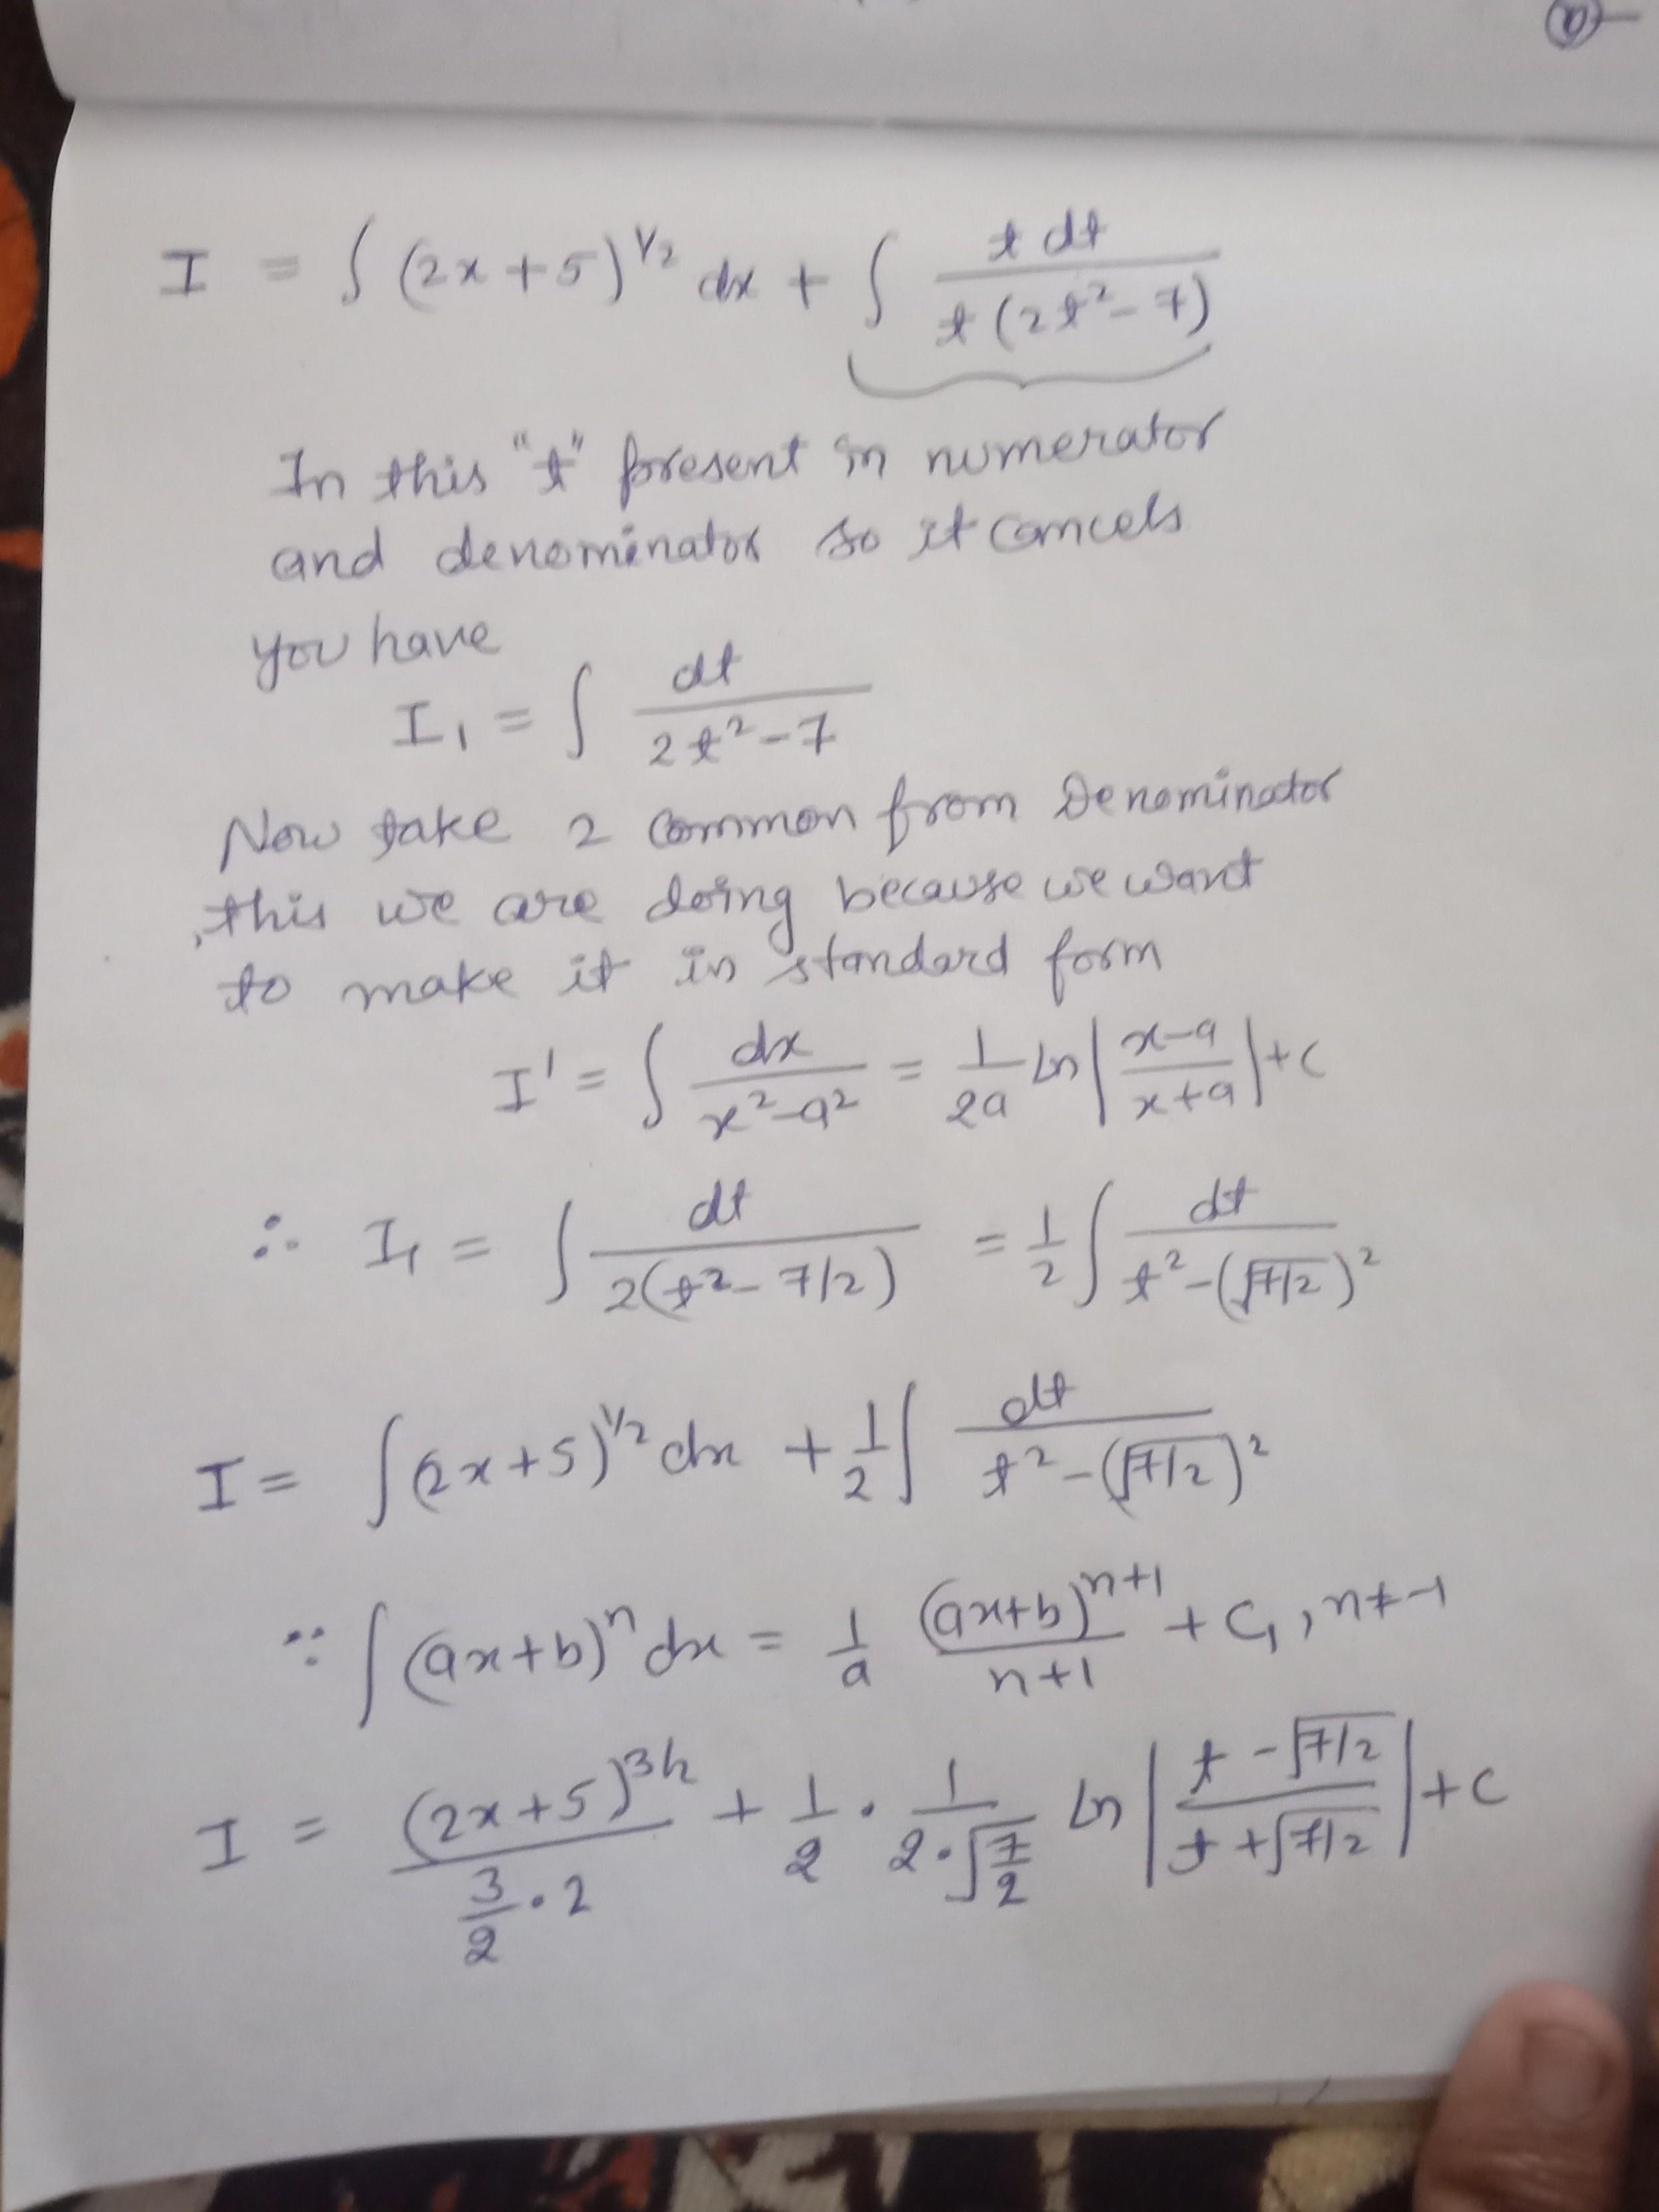 a
I = ∫ (2x+5)^1/2 dx + ∫ t dt / t(2t²-7)
In this "t" present in numerator
and denominator so it cancels
you have
I₁ = ∫ dt / 2t²-7
Now take 2 common from Denominator
,this we are doing because we want
to make it in standard form
I' = ∫ dx / x²-a² = 1/2a ln |x-a / x+a| + c
∴ I₁ = ∫ dt / 2(t²-7/2) = 1/2 ∫ dt / t²-(√7/2)²
I = ∫ (2x+5)^1/2 dx + 1/2 ∫ dt / t²-(√7/2)²
∵ ∫ (ax+b)^n dx = 1/a (ax+b)^n+1 / n+1 + C₁, n≠-1
I = (2x+5)^3/2 / 3/2 · 2 + 1/2 · 1 / 2·√7/2 ln |t-√7/2 / t+√7/2| + c